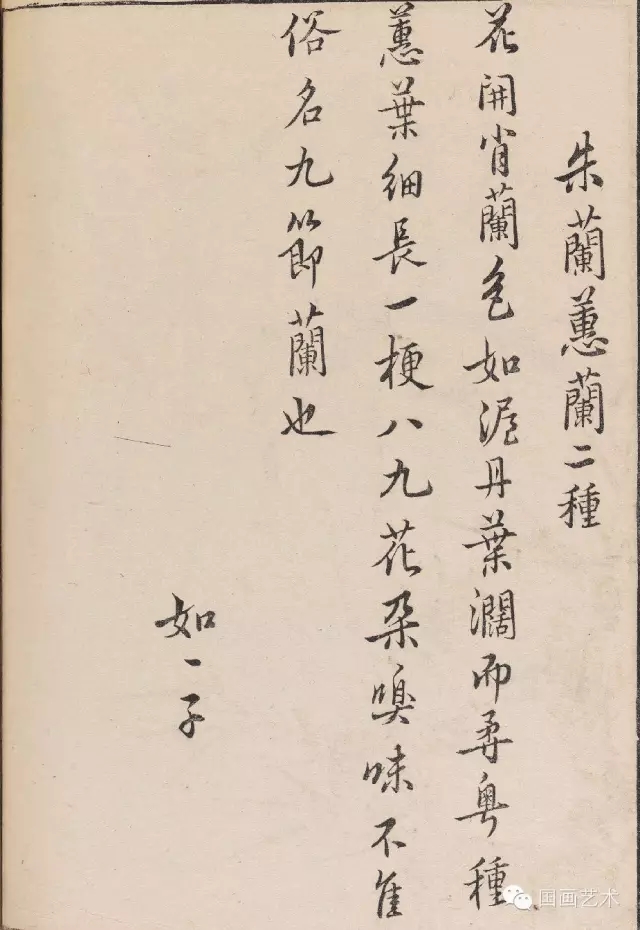 朱蘭蕙蘭二種
花開肖蘭色如渥丹葉濶而柔粤種
蕙葉細長一梗八九花朵嗅味不隹
俗名九節蘭也
如一子
国画艺术